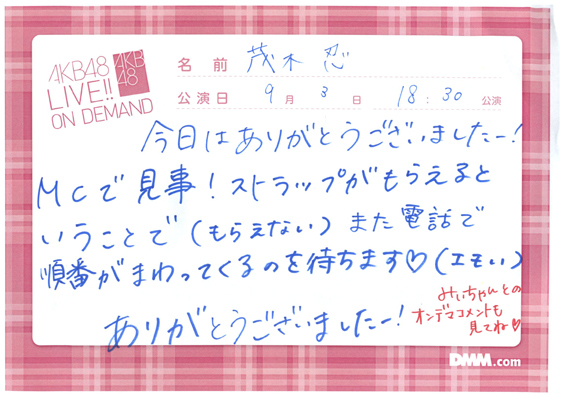 AKB48
LIVE!!
ON DEMAND
AKB
48
名前 茂木忍
公演日 9月3日 18:30 公演
今日はありがとうございましたー!
MCで見事!ストラップがもらえると
いうことで(もらえない)また電話で
順番がまわってくるのを待ちます♡(エモい)
みぃちゃんとの
オンデマコメントも
見てね♡
ありがとうございましたー!
DMM.com